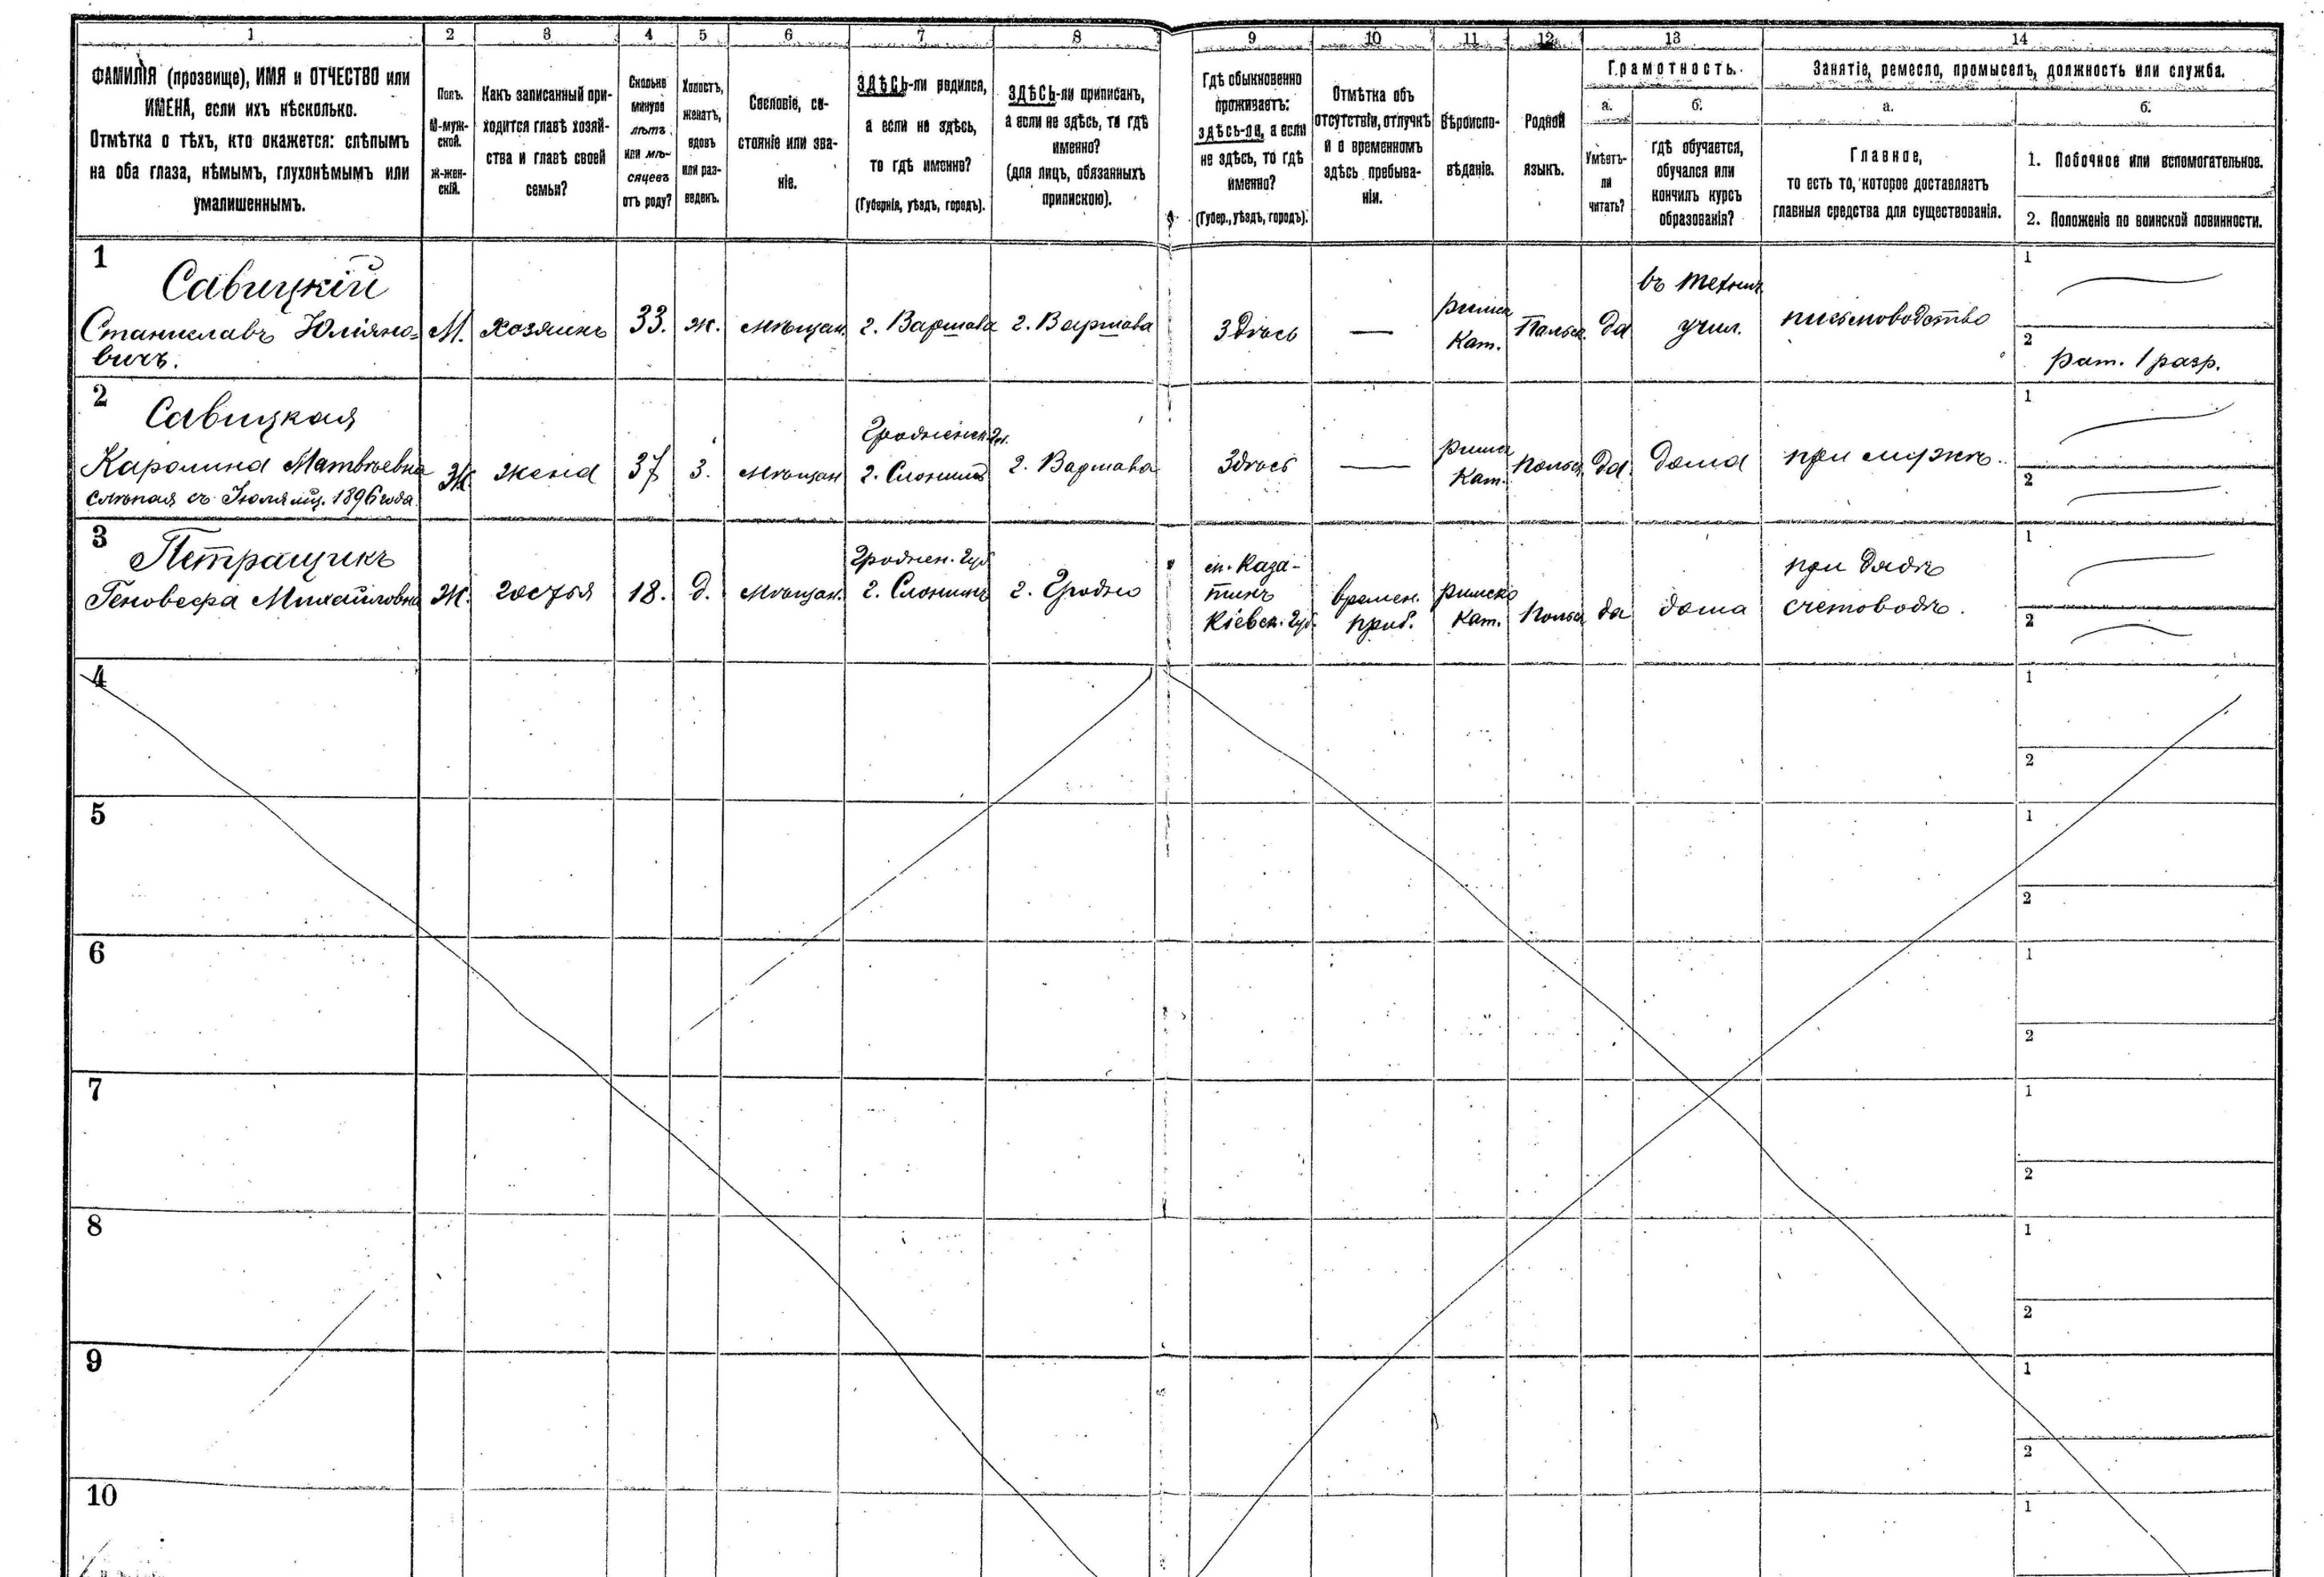 1 2 3 4 5 6 7 8 9 10 11 12 13 14
ФАМИЛІЯ (прозвище), ИМЯ и ОТЧЕСТВО или
ИМЕНА, если ихъ нѣсколько.
Отмѣтка о тѣхъ, кто окажется: слѣпымъ
на оба глаза, нѣмымъ, глухонѣмымъ или
умалишеннымъ.
Полъ.
М-муж-
ской.
Ж-жен-
скій.
Какъ записанный при-
ходится главѣ хозяй-
ства и главѣ своей
семьи?
Сколько
минуло
лѣтъ
или мѣ-
сяцевъ
отъ роду?
Холостъ,
женатъ,
вдовъ
или раз-
веденъ.
Сословіе, со-
стояніе или зва-
ніе.
ЗДѢСЬ-ли родился,
а если не здѣсь,
то гдѣ именно?
(Губернія, уѣздъ, городъ).
ЗДѢСЬ-ли приписанъ,
а если не здѣсь, то гдѣ
именно?
(для лицъ, обязанныхъ
припискою).
Гдѣ обыкновенно
проживаетъ:
здѣсь-ли, а если
не здѣсь, то гдѣ
именно?
(Губер., уѣздъ, городъ).
Отмѣтка объ
отсутствіи, отлучкѣ
и о временномъ
здѣсь пребыва-
ніи.
Вѣроиспо-
вѣданіе.
Родной
языкъ.
Грамотность.
а.
Умѣетъ-
ли
читать?
б.
гдѣ обучается,
обучался или
кончилъ курсъ
образованія?
Занятіе, ремесло, промыселъ, должность или служба.
а.
Главное,
то есть то, которое доставляетъ
главныя средства для существованія.
б.
1. Побочное или вспомогательное.
2. Положеніе по воинской повинности.
1
Савицкій
Станиславъ Юліяно=
вичъ.
М.
хозяинъ
33.
ж.
мѣщан.
г. Варшава
г. Варшава
Здѣсь
—
римск
Кат.
Польск.
да
въ техник
учил.
письмоводство
1
2
рат. 1 разр.
2
Савицкая
Каролина Матвѣевна
слѣпая съ Іюля мц. 1896 года
Ж.
жена
37
з.
мѣщан
Гродненск. Губ.
г. Слонимъ
г. Варшава
Здѣсь
—
римск
Кат.
польск.
да.
дома
при мужѣ.
1
2
3
Петращикъ
Геновефа Михайловна
Ж.
гостья
18.
д.
мѣщан.
Гроднен. Губ
г. Слонимъ
г. Гродно
ст. Каза-
тинъ
Кіевск. Губ.
времен.
приб.
римско
Кат.
Польск
да
дома
при дядѣ
счетоводѣ.
1
2
4
1
2
5
1
2
6
1
2
7
1
2
8
1
2
9
1
2
10
1